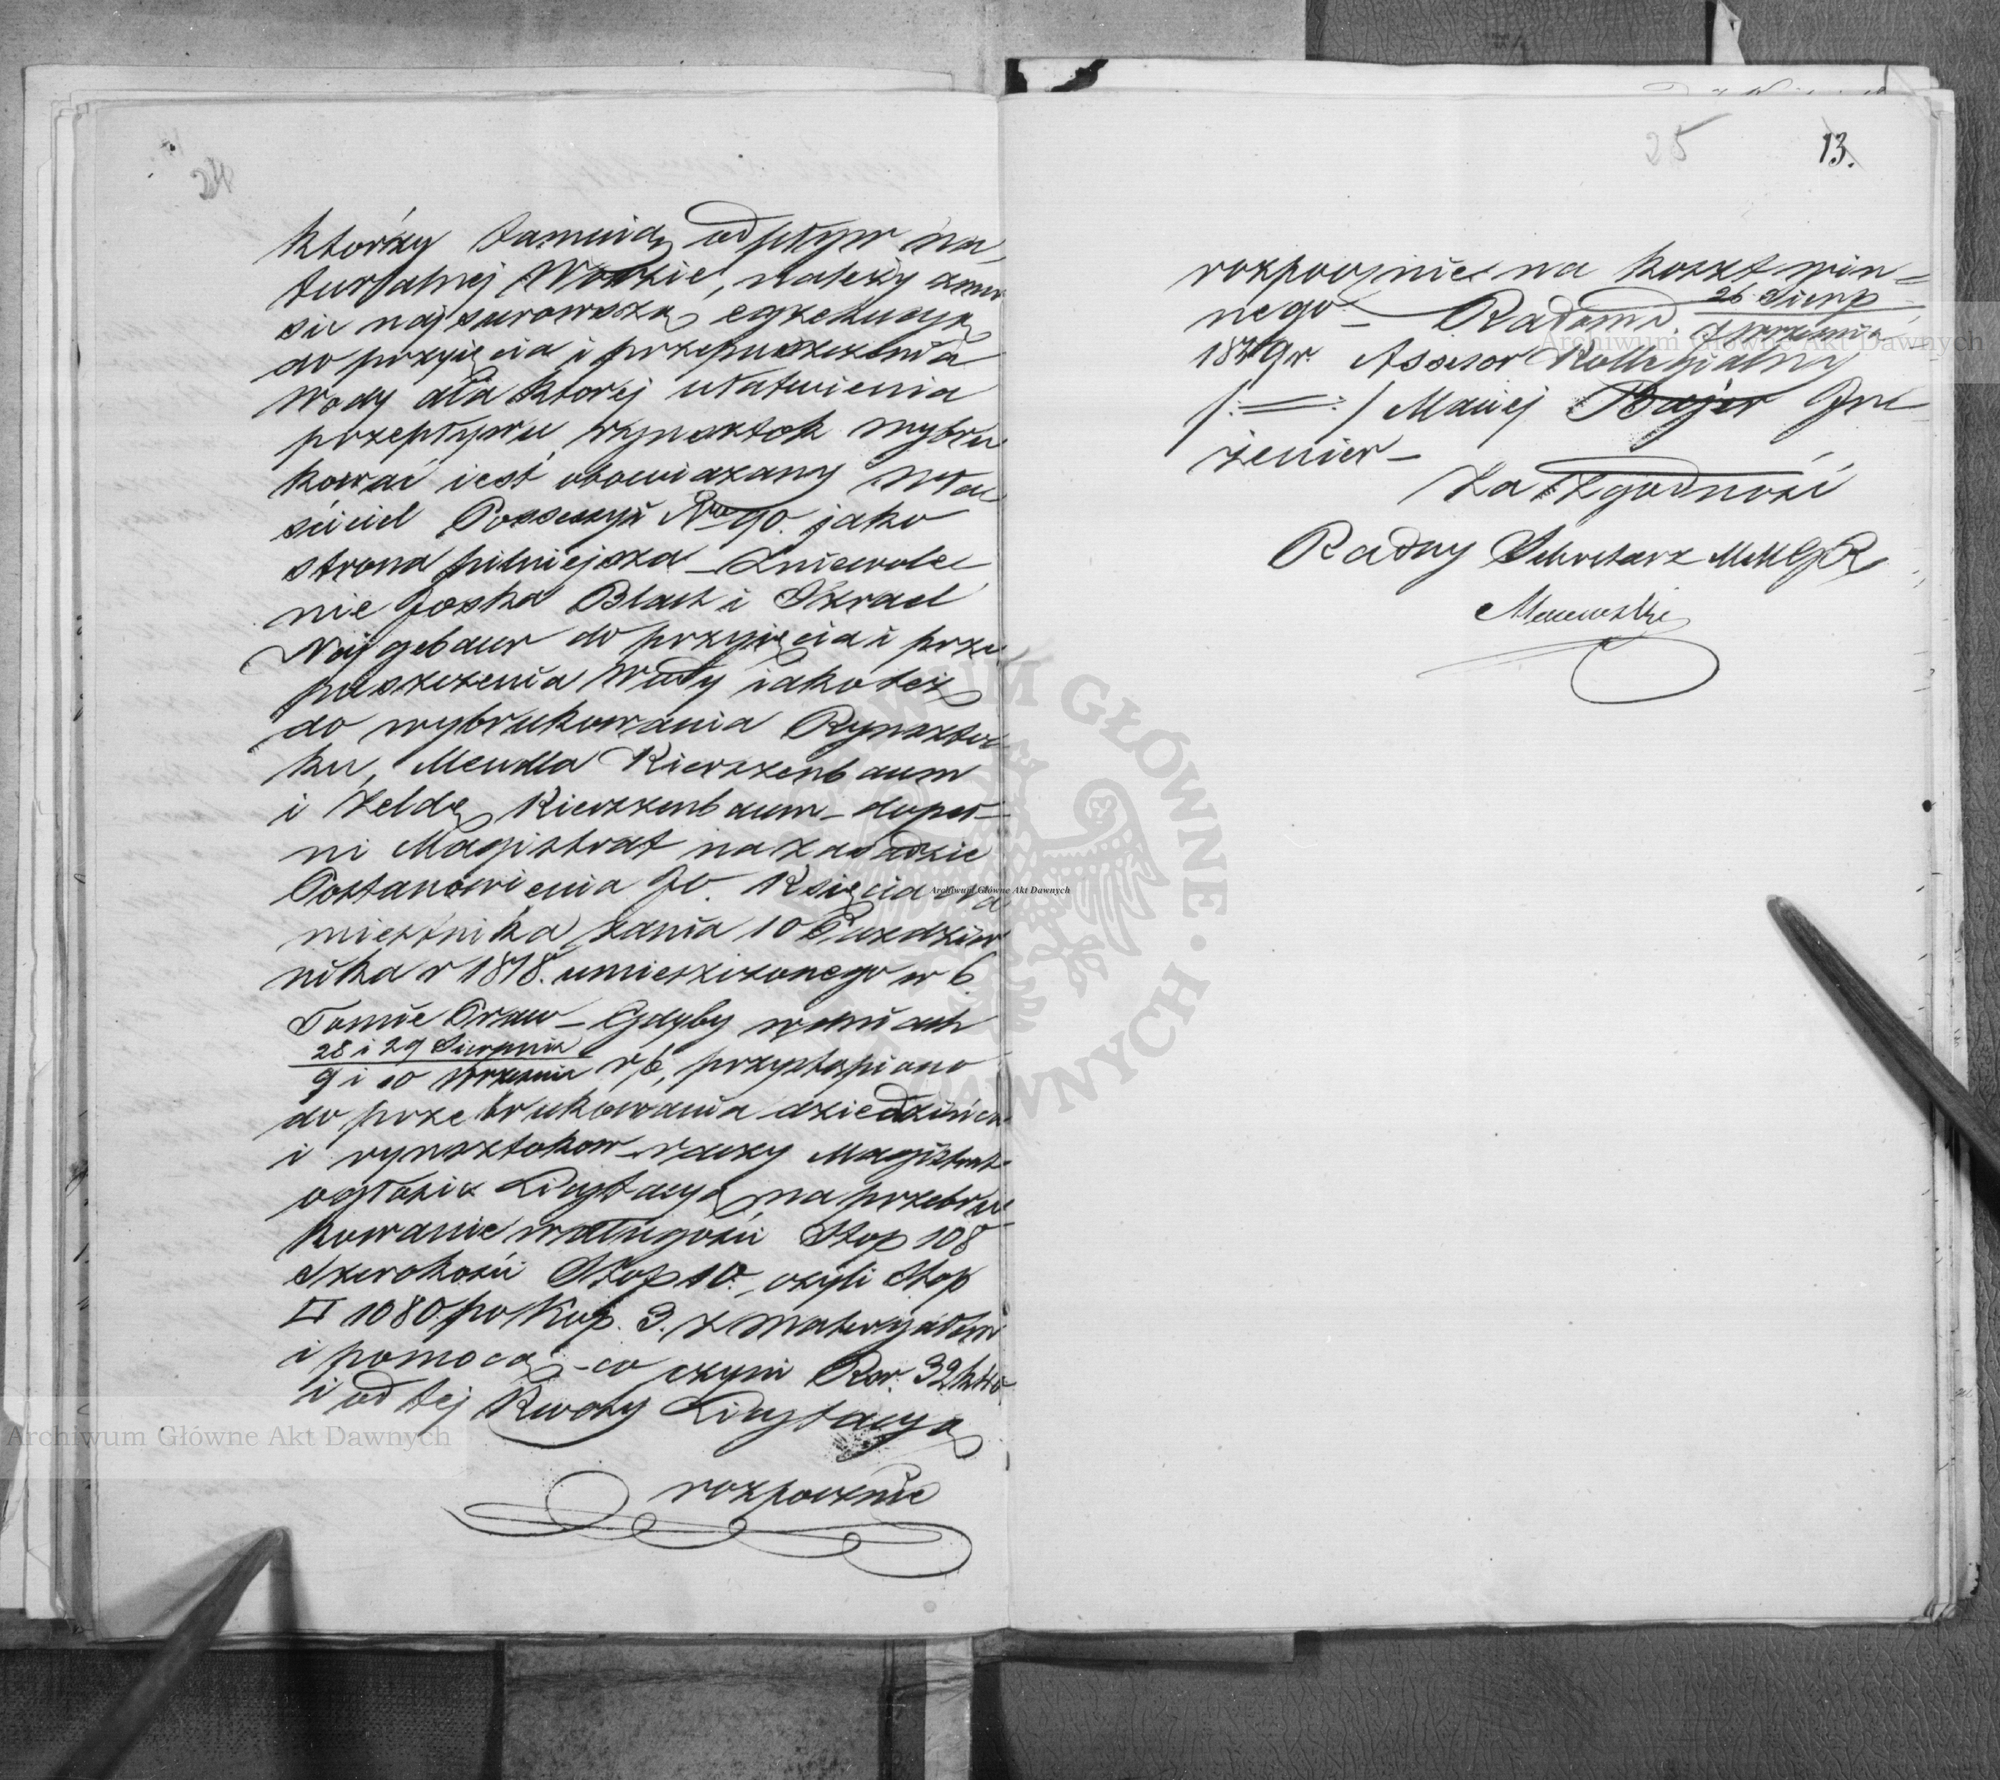 24
którzy tamują odpływ na-
turalnej Wodzie, należy zmu-
sić najsurowszą egzekucyą
do przyięcia i przepuszczenia
Wody dla której ułatwienia
przepływu, rynsztok wybru-
kować iest obowiązany Wła-
ściciel Possessyi Nro 90. jako
strona pilniejsza – Zniewole-
nie Joska Blath i Izrael
Najgebaur do przyięcia i prze-
puszczenia Wody iakoteż
do wybrukowania Rynszto-
ku, Mendla Kierszenbaum
i Zeldę Kierszenbaum – dopeł-
ni Magistrat na zasadzie
Postanowienia JO. Księcia Na-
miestnika z dnia 10 Paździer-
nika r 1818. umieszczonego w 6.
Tomie Praw – Gdyby w dniach
28 i 29 Sierpnia
9 i 10 Września r b, przystąpiono
do przebrukowania dziedzińca
i rynsztoków – raczy Magistrat
ogłosić Licytacyą na przebru-
kowanie w długości Stop 108
Szerokości Stop 10., czyli Stop
□ 1080. po Kop. 3. z materyałem
i pomocą – co czyni Rsr. 32 k 40
i od tej Kwoty Licytacyą
rozpocznie
25 13.
rozpocznie na koszt win-
nego – Radom d. 26 Sierp
7 Września
1849 r. Assesor Kollegialny
/:=:/ Maciej Bajer In-
żenier –
Za Zgodność
Radny Sekretarz MMGR
Archiwum Główne Akt Dawnych
Archiwum Główne Akt Dawnych
Archiwum Główne Akt Dawnych
ARCHIWUM GŁÓWNE AKT DAWNYCH